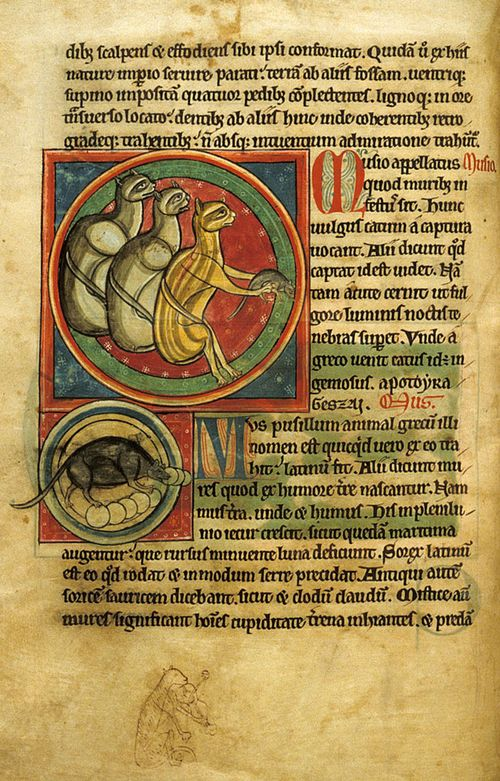 dibꝫ scalpens & effodiens sibi ipsi conformat. Quidā ů ex hiis
nature impio seruire parati. terrā ab aliis fossam. uentriqꝫ
supino impositā quatuor pedibꝫ cōplectentes. lignoqꝫ in ore
tͣsuerso locato. dentibꝫ ab aliis hinc inde coherentibꝫ retro
gradeqꝫ trahentibꝫ. ñ absqꝫ intuentium admiratione trahūt᷑.
Musio appellatus Musio.
quod muribꝫ in
festus sit. Hunc
uulgus catum a captura
uocant. Alii dicunt qd̓
captat id est uidet. Nā
tam acute cernit ut ful
gore luminis noctis te
nebras supet. Vnde a
greco uenit catus id ÷ in
geniosus. apotoyra
geszai. Mus.
Mus pusillum animal grecū illi
nomen est quicqͥd uero ex eo tra
hit᷑ latinum fit. Alii dicunt mu
res quod ex humore tr̄e nascantur. Nam
mus tr̄a. unde & humus. His in plenilu
nio iecur crescit. sicut quedam maritima
augentur. que rursus minuente luna deficiunt. Sorex latinū
est eo qd̓ rodat & in modum serre precidat. Antiqui autē
soricē sauricem dicebant. sicut & clodū claudū. Mistice aut̄
mures significant hoīes cupiditate tr̄rena inhiantes. & predā